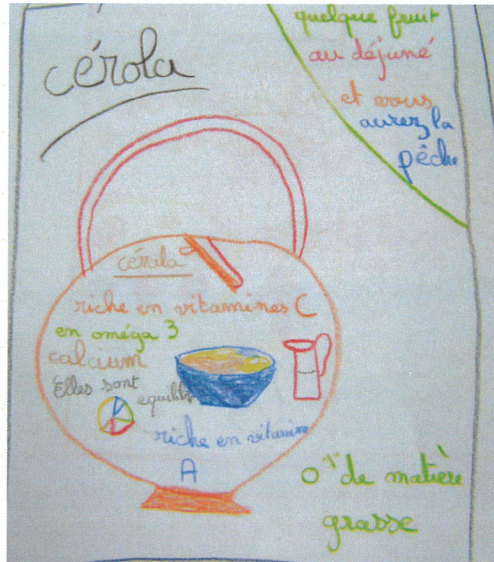 cérola
quelque fruit
au déjuné
et vous
aurez la
pêche
cérola
riche en vitamines C
en oméga 3
calcium
Elles sont
equilib
riche en vitamine
A
0% de matière
grasse